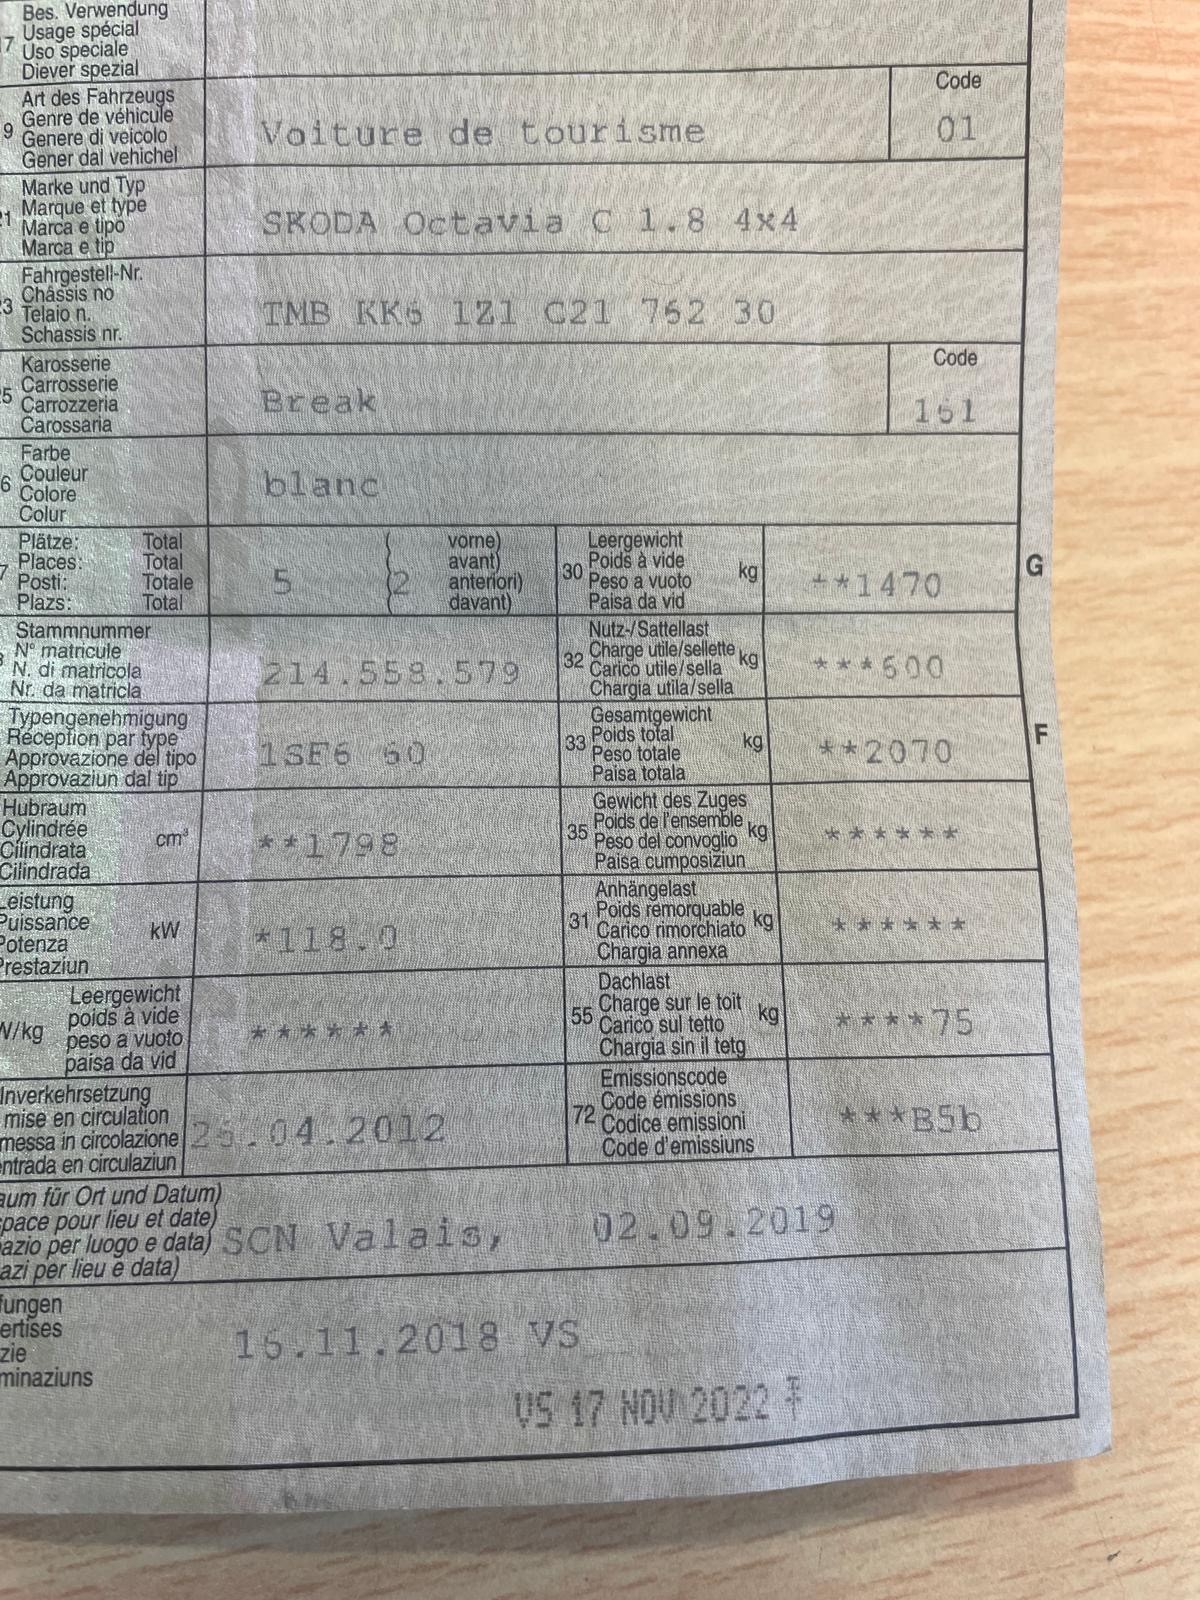 7 Bes. Verwendung
Usage spécial
Uso speciale
Diever spezial
9 Art des Fahrzeugs
Genre de véhicule
Genere di veicolo
Gener dal vehichel
Voiture de tourisme
Code
01
Marke und Typ
Marque et type
Marca e tipo
Marca e tip
SKODA Octavia C 1.8 4x4
Fahrgestell-Nr.
Châssis no
Telaio n.
Schassis nr.
TMB KK6 1Z1 C21 762 30
Karosserie
Carrosserie
Carrozzeria
Carossaria
Break
Code
161
Farbe
Couleur
Colore
Colur
blanc
Plätze: Total
Places: Total
Posti: Totale
Plazs: Total
5 (2 vorne)
avant)
anteriori)
davant)
30 Leergewicht
Poids à vide
Peso a vuoto
Paisa da vid
kg
**1470
G
Stammnummer
N° matricule
N. di matricola
Nr. da matricla
214.558.579
32 Nutz-/Sattellast
Charge utile/sellette
Carico utile/sella
Chargia utila/sella
kg
***600
Typengenehmigung
Réception par type
Approvazione del tipo
Approvaziun dal tip
1SF6 60
33 Gesamtgewicht
Poids total
Peso totale
Paisa totala
kg
**2070
F
Hubraum
Cylindrée
Cilindrata
Cilindrada
cm³
**1798
35 Gewicht des Zuges
Poids de l'ensemble
Peso del convoglio
Paisa cumposiziun
kg
******
Leistung
Puissance
Potenza
Prestaziun
kW
*118.0
31 Anhängelast
Poids remorquable
Carico rimorchiato
Chargia annexa
kg
******
W/kg
Leergewicht
poids à vide
peso a vuoto
paisa da vid
******
55 Dachlast
Charge sur le toit
Carico sul tetto
Chargia sin il tetg
kg
****75
Inverkehrsetzung
mise en circulation
messa in circolazione
entrada en circulaziun
26.04.2012
72 Emissionscode
Code émissions
Codice emissioni
Code d'emissiuns
***B5b
aum für Ort und Datum)
space pour lieu et date)
azio per luogo e data)
azi per lieu e data)
SCN Valais, 02.09.2019
fungen
ertises
zie
minaziuns
16.11.2018 VS
VS 17 NOV 2022